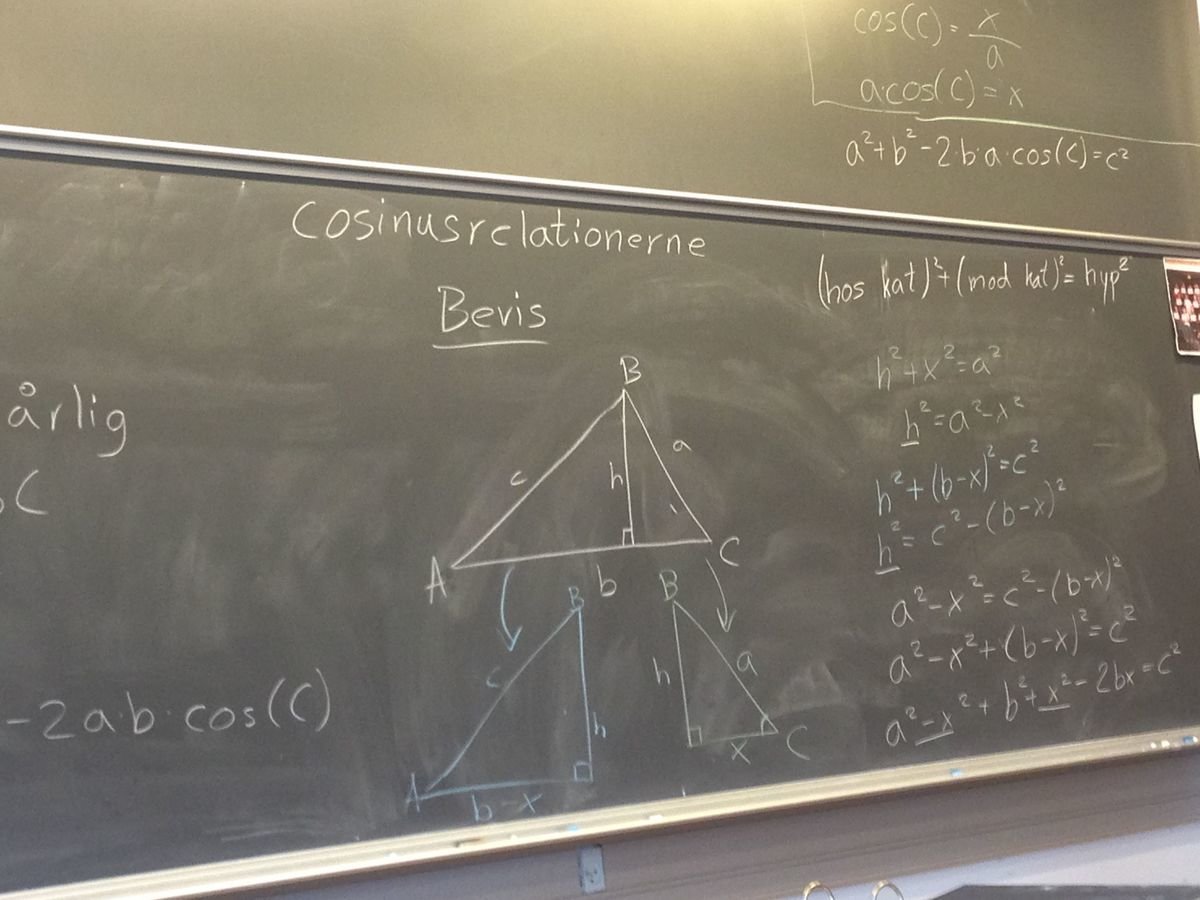 cos(C) = x/a
a·cos(C) = x
a²+b²-2·b·a·cos(C)=c²
Cosinusrelationerne
Bevis
årlig
C
-2a·b·cos(C)
B
c
h
a
A
b
C
B
c
h
A
b-x
B
h
a
x
C
(hos kat)²+(mod kat)²=hyp²
h²+x²=a²
h²=a²-x²
h²+(b-x)²=c²
h²=c²-(b-x)²
a²-x²=c²-(b-x)²
a²-x²+(b-x)²=c²
a²-x²+b²+x²-2bx=c²